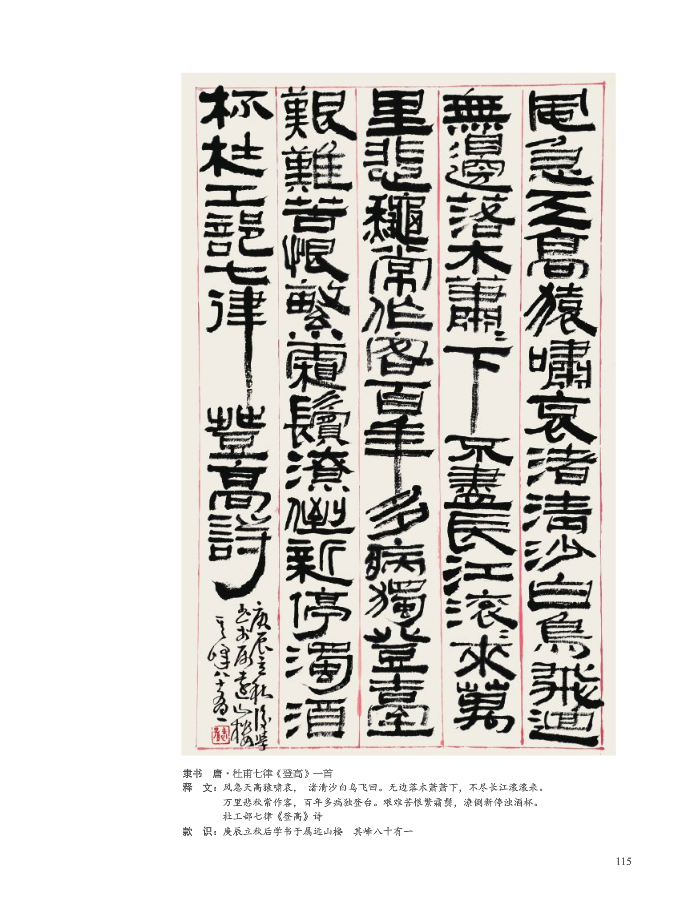 風急天高猿嘯哀渚清沙白鳥飛迴
無邊落木蕭〻下不盡長江滾〻來萬
里悲龝常作客百年多病獨登臺
艱難苦恨繁霜鬢潦倒新停濁酒
杯杜工部七律登高詩
庚辰立秋後學
書於屬遠山樓
其峰八十有一
隶书　唐·杜甫七律《登高》一首
释　文：风急天高猿啸哀，渚清沙白鸟飞回。无边落木萧萧下，不尽长江滚滚来。
万里悲秋常作客，百年多病独登台。艰难苦恨繁霜鬓，潦倒新停浊酒杯。
杜工部七律《登高》诗
款　识：庚辰立秋后学书于属远山楼　其峰八十有一
115